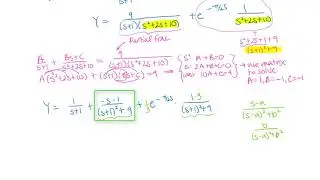 Y = 9/((s+1)(s²+2s+10)) + e^(-π/2 s) 1/(s²+2s+10)
Partial frac
s²+2s+1+9
(s+1)²+9
A/(s+1) + (Bs+C)/(s²+2s+10) = 9/((s+1)(s²+2s+10))
A(s²+2s+10)+(s+1)(Bs+C)=9
s²: A+B=0
s: 2A+B+C=0
10A+C=9
to solve
A=1, B=-1, C=-1
Y = 1/(s+1) + (-s-1)/((s+1)²+9) + 1/3 e^(-π/2 s) 1·3/((s+1)²+9)
s-a/((s-a)²+b²)
b/((s-a)²+b²)